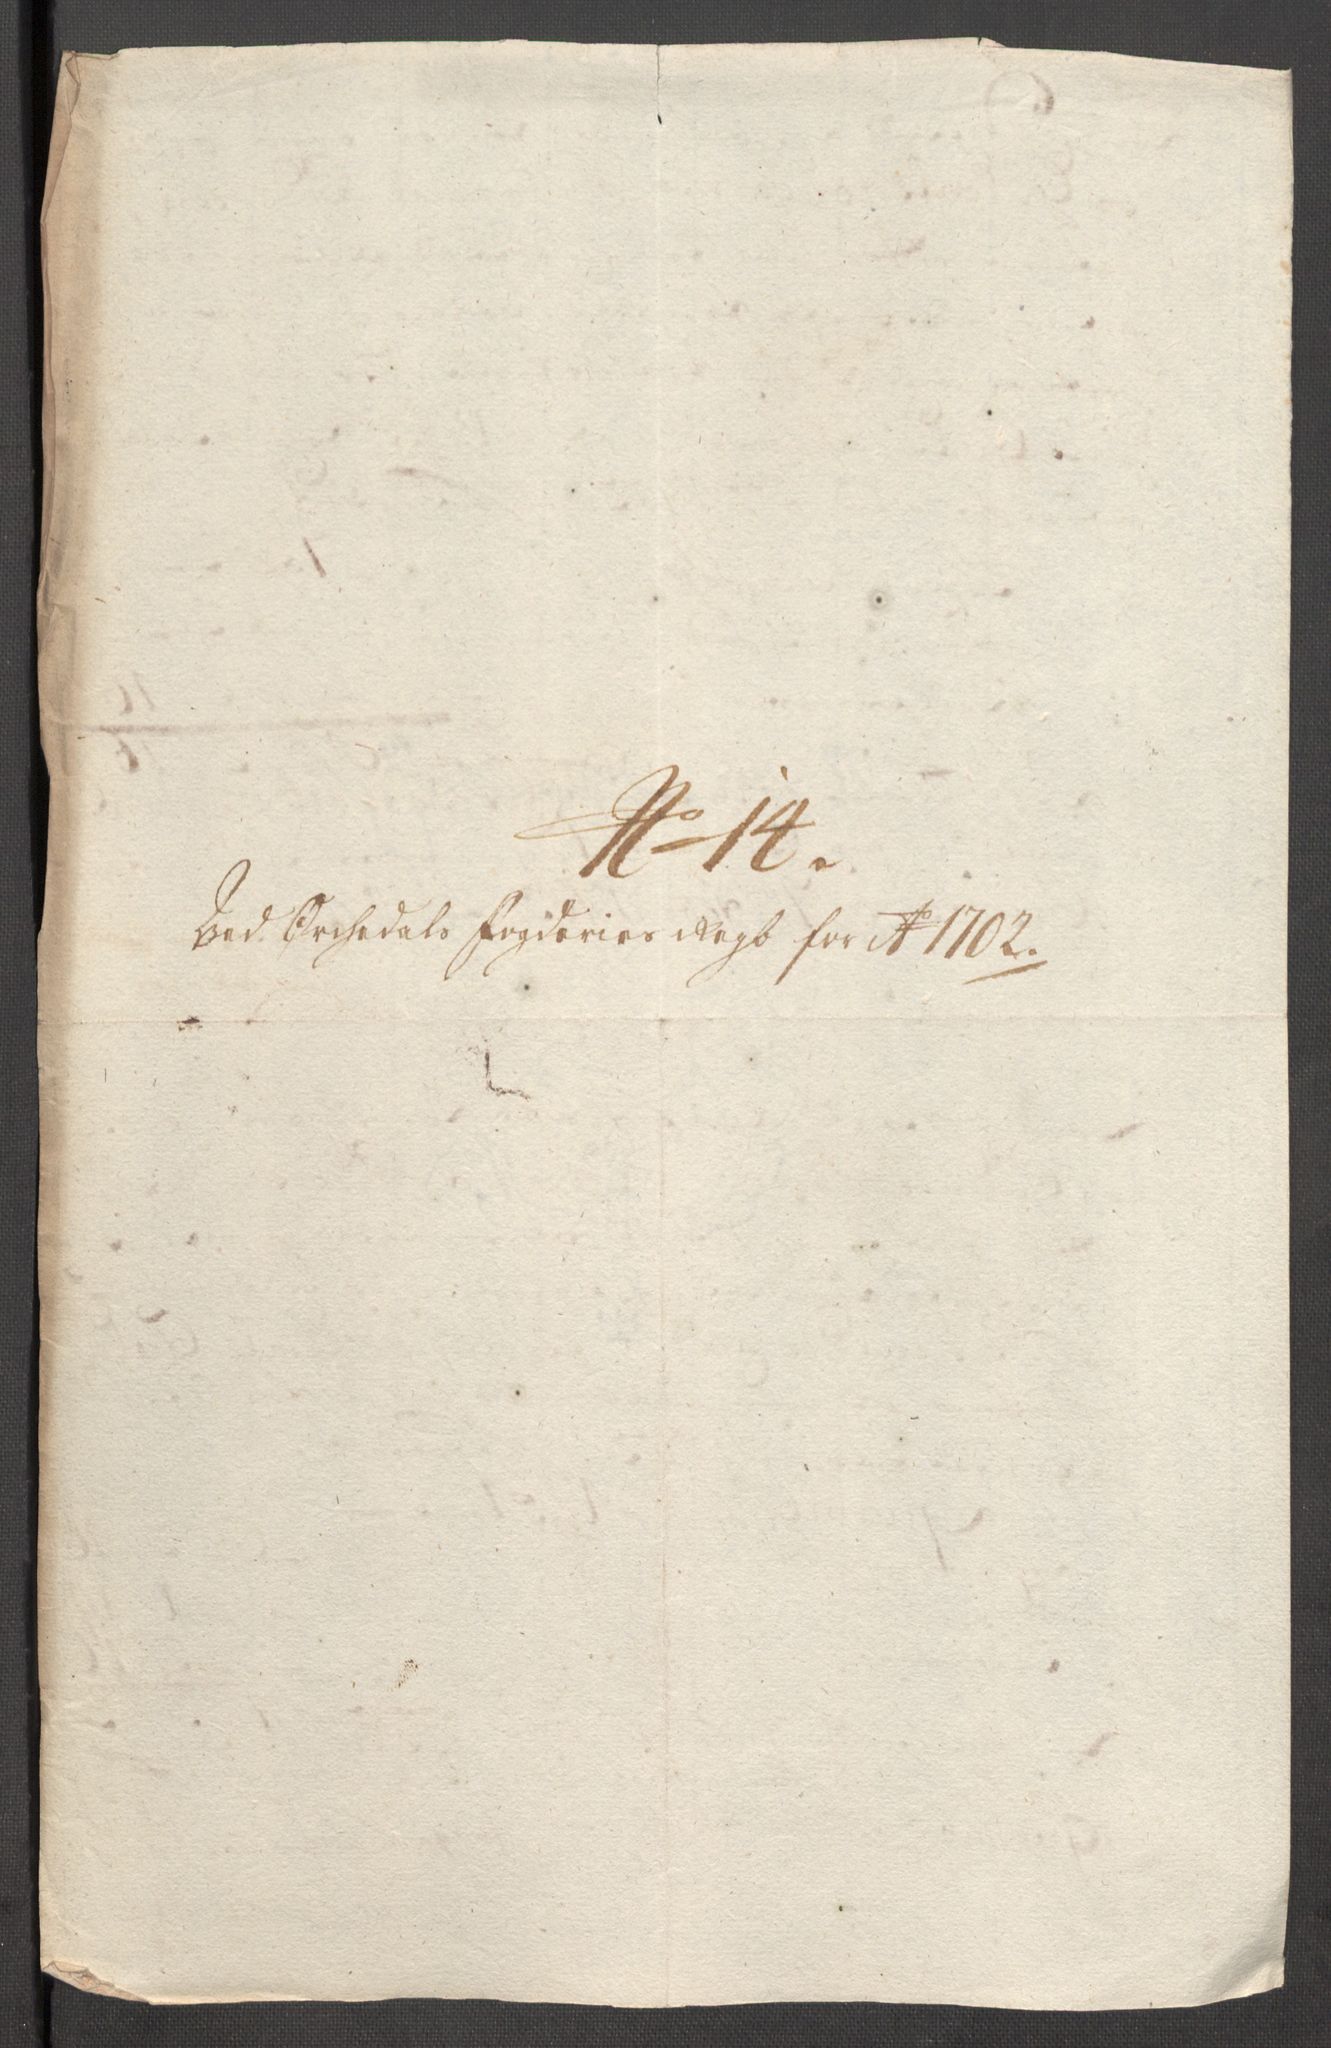 No 14.
Ved Orchedals Fogderies Regb for Ao 1702.